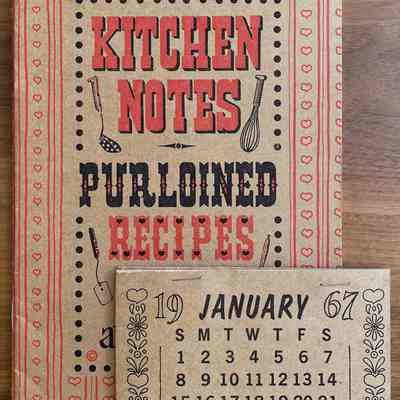 KITCHEN
NOTES
PURLOINED
RECIPES
a
©
19 JANUARY 67
S M T W T F S
1 2 3 4 5 6 7
8 9 10 11 12 13 14
15 16 17 18 19 20 21